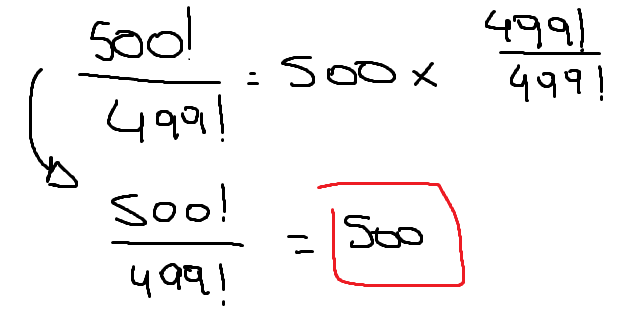 500!/499! = 500 × 499!/499!
500!/499! = 500